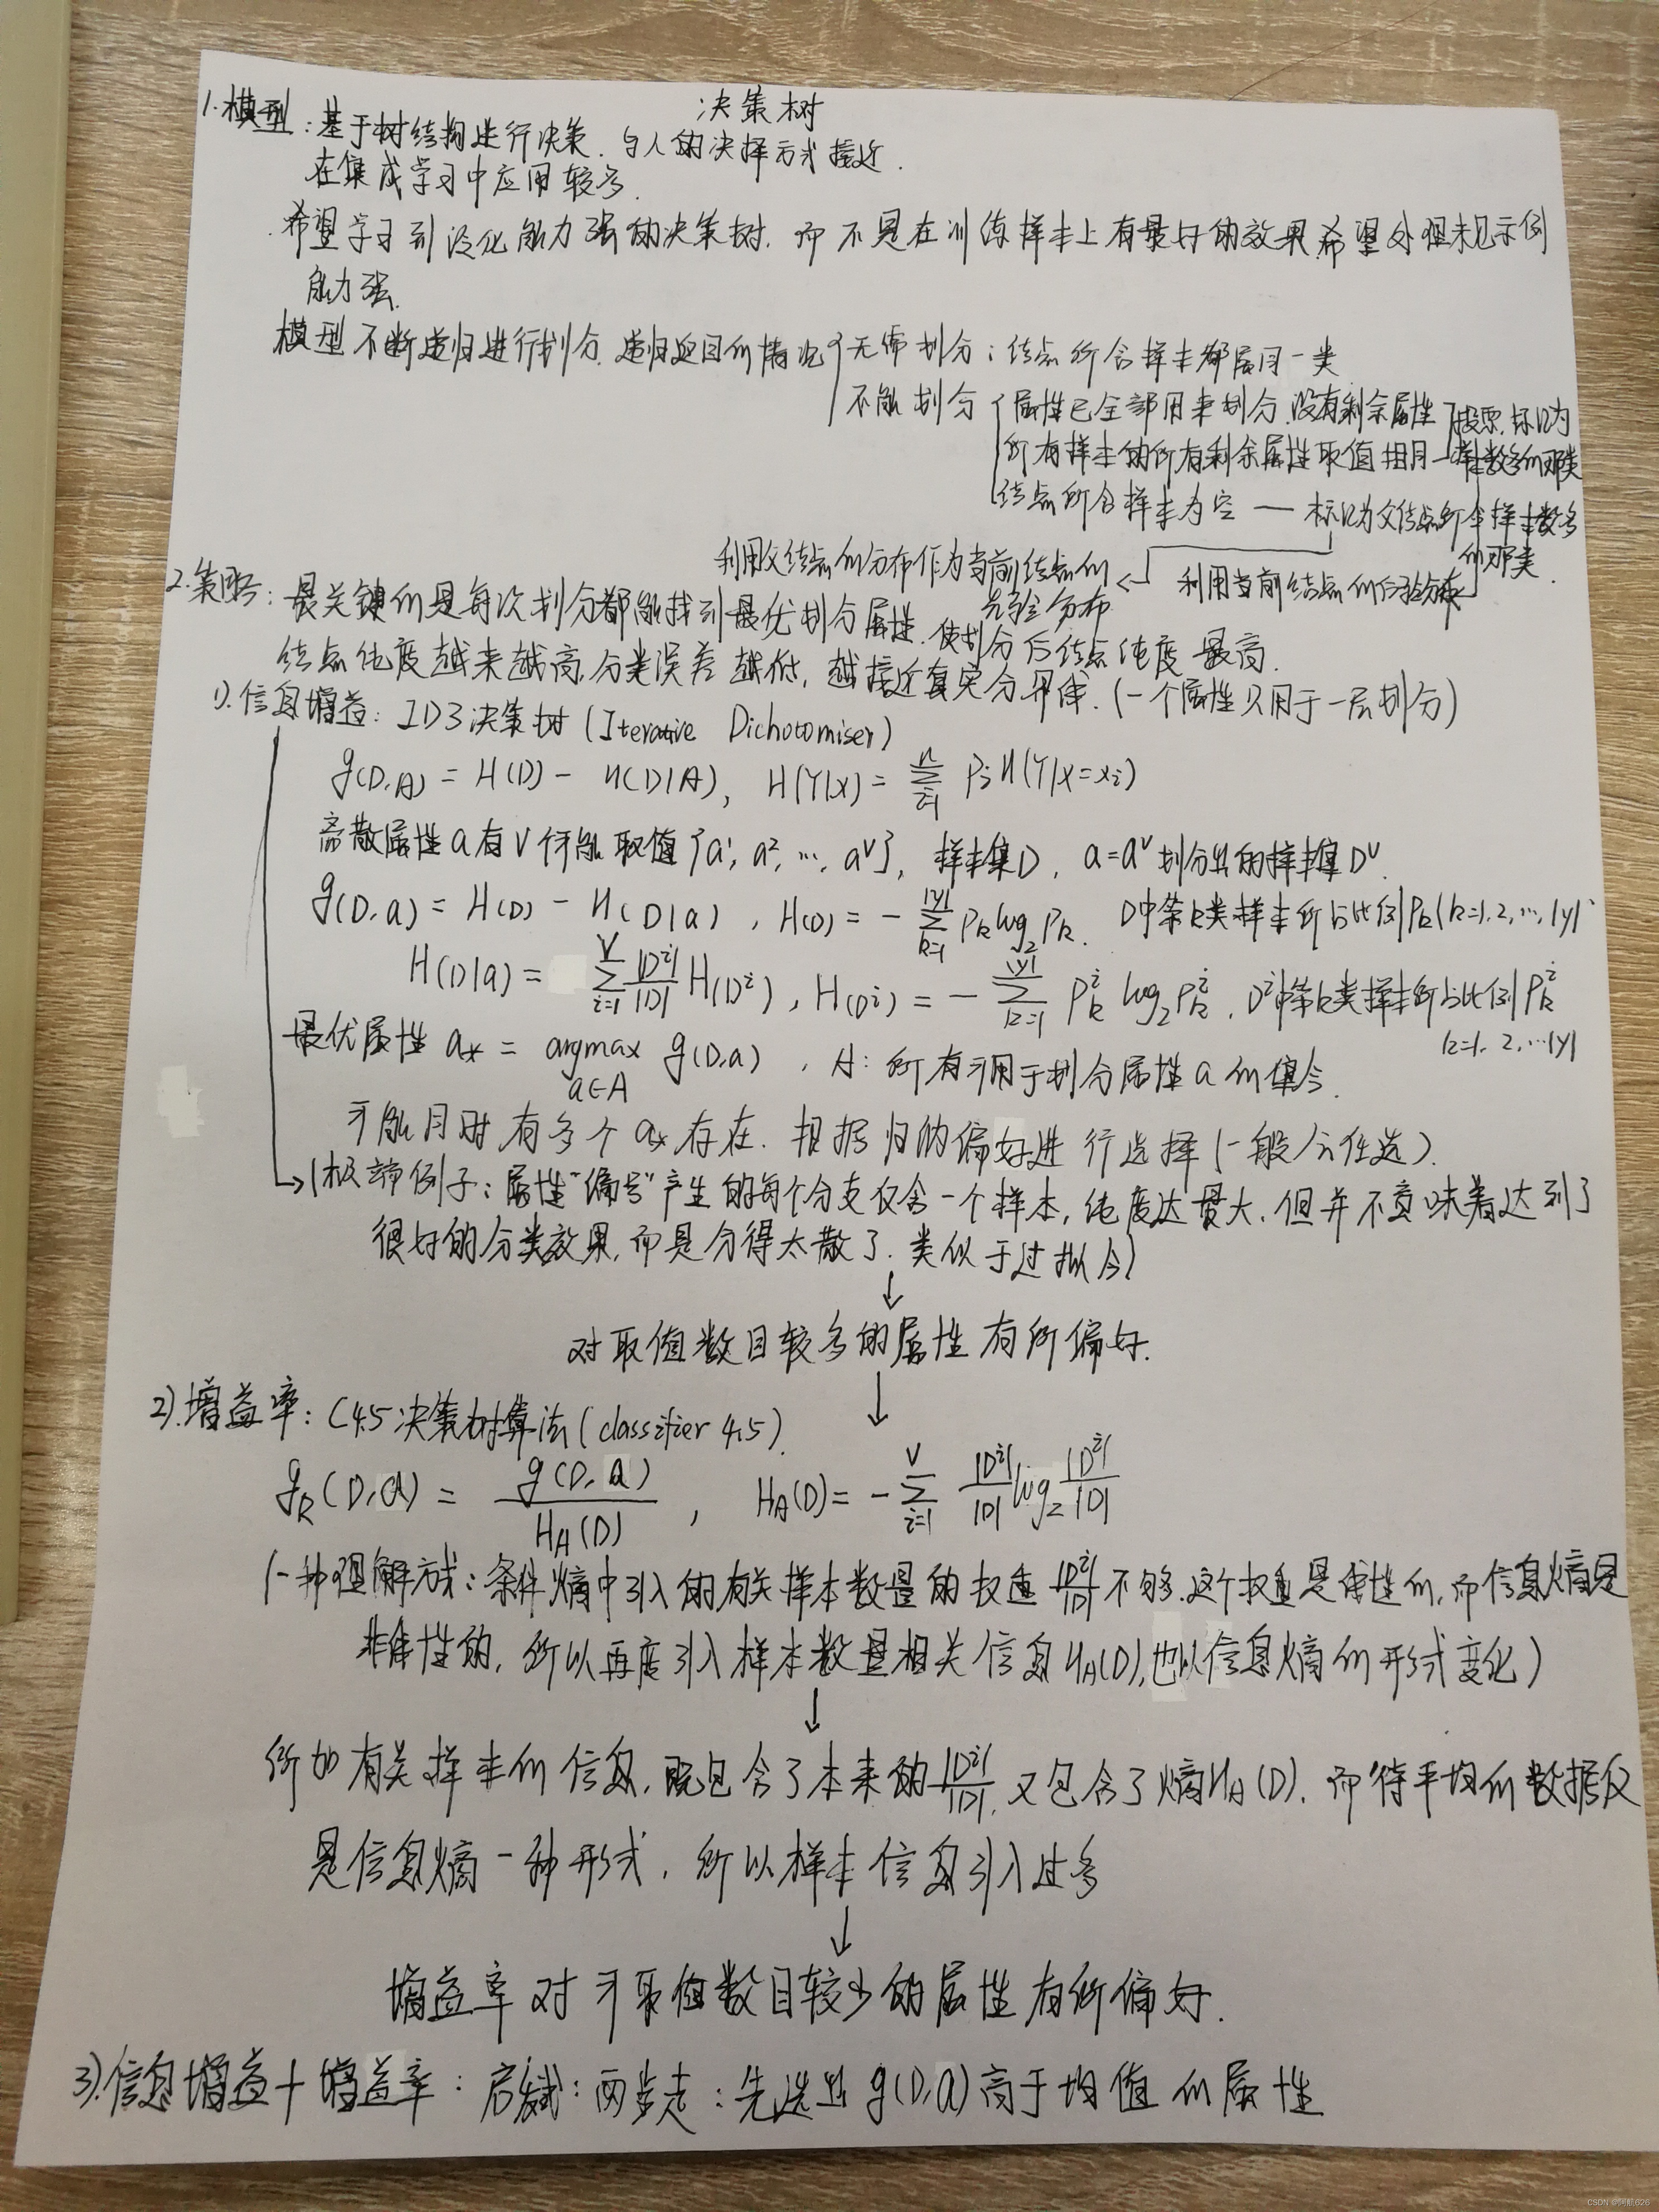 决策树
1.模型：基于树结构进行决策，与人的决择方式接近．
在集成学习中应用较多．
希望学习到泛化能力强的决策树，而不是在训练样本上有最好的效果，希望处理未见示例
能力强．
模型不断递归进行划分，递归返回的情况{无需划分：结点所含样本都属同一类
不能划分{属性已全部用来划分，没有剩余属性
所有样本的所有剩余属性取值相同
投票，标记为
样本数多的那类
结点所含样本为空 — 标记为父结点所含样本数多
的那类．
利用父结点的分布作为当前结点的
先验分布
利用当前结点的后验分布
2.策略：最关键的是每次划分都能找到最优划分属性，使划分后结点纯度最高．
结点纯度越来越高，分类误差越低，越接近真实分界线．(一个属性只用于一层划分)
1).信息增益：ID3决策树 (Iterative Dichotomiser)
g(D,A) = H(D) - H(D|A), H(Y|X) = ∑_{i=1}^{n} p_i H(Y|X=x_i)
离散属性a有V个可能取值{a¹, a², …, a^V}，样本集D，a=a^v划分出的样本集D^v．
g(D,a) = H(D) - H(D|a), H(D) = -∑_{k=1}^{|y|} p_k log₂ p_k． D中第k类样本所占比例p_k(k=1,2,…,|y|)
H(D|a) = ∑_{i=1}^{V} |D^i|/|D| H(D^i), H(D^i) = -∑_{k=1}^{|y|} p_k^i log₂ p_k^i，D^i中第k类样本所占比例p_k^i
k=1, 2, …|y|
最优属性 a* = argmax_{a∈A} g(D,a)，A: 所有可用于划分属性a的集合．
可能同时有多个a*存在．根据归纳偏好进行选择(一般会任选)．
(极端例子：属性“编号”产生的每个分支仅含一个样本，纯度达最大，但并不意味着达到了
很好的分类效果，而是分得太散了，类似于过拟合)
↓
对取值数目较多的属性有所偏好．
↓
2).增益率：C4.5决策树算法(classifier 4.5)．
g_R(D,a) = g(D,a)/H_A(D), H_A(D) = -∑_{i=1}^{V} |D^i|/|D| log₂ |D^i|/|D|
(一种理解方式：条件熵中引入的有关样本数量的权重|D^i|/|D|不够．这个权重是线性的，而信息熵是
非线性的，所以再度引入样本数量相关信息H_A(D)，也以信息熵的形式变化)
↓
所加有关样本的信息，既包含了本来的|D^i|/|D|，又包含了熵H_A(D)．而待平均的数据仅
是信息熵一种形式，所以样本信息引入过多
↓
增益率对可取值数目较少的属性有所偏好．
3).信息增益+增益率：启发式：两步走：先选出g(D,a)高于均值的属性
CSDN @阿航626